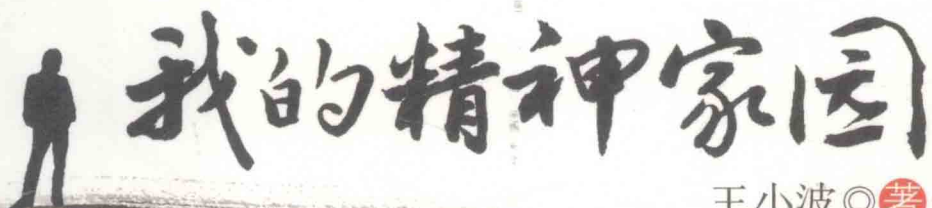 我的精神家园
王小波◎著